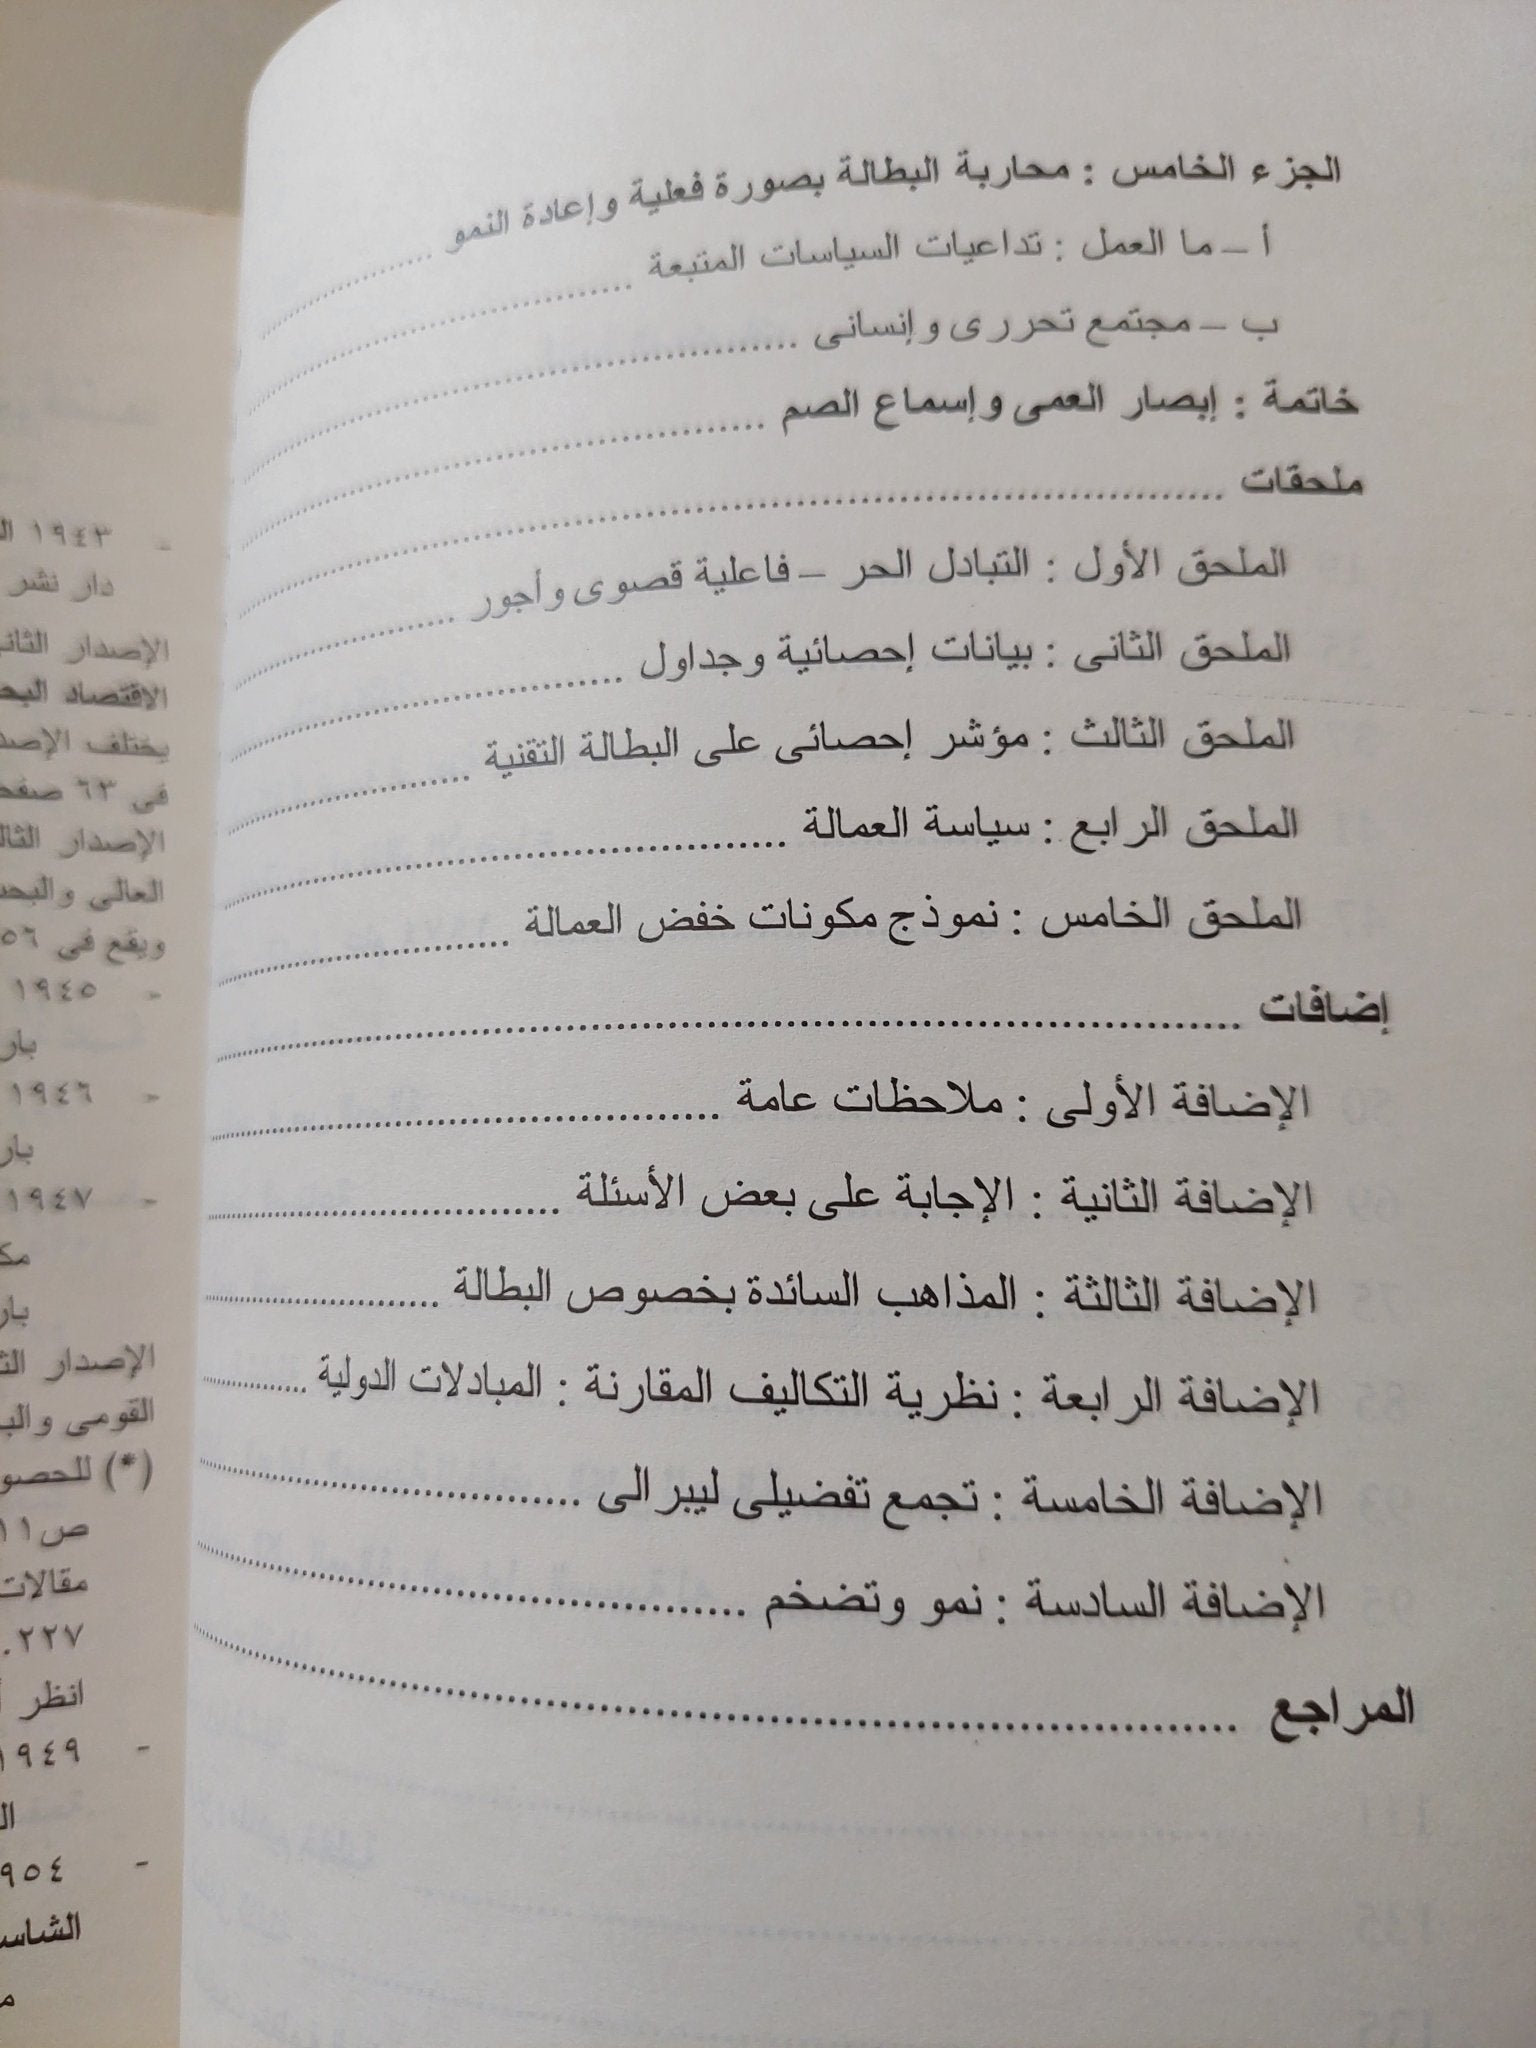 الجزء الخامس : محاربة البطالة بصورة فعلية وإعادة النمو ..........
أ – ما العمل : تداعيات السياسات المتبعة ..........
ب – مجتمع تحررى وإنسانى ..........
خاتمة : إبصار العمى وإسماع الصم ..........
ملحقات ..........
الملحق الأول : التبادل الحر – فاعلية قصوى وأجور ..........
الملحق الثانى : بيانات إحصائية وجداول ..........
الملحق الثالث : مؤشر إحصائى على البطالة التقنية ..........
الملحق الرابع : سياسة العمالة ..........
الملحق الخامس : نموذج مكونات خفض العمالة ..........
إضافات ..........
الإضافة الأولى : ملاحظات عامة ..........
الإضافة الثانية : الإجابة على بعض الأسئلة ..........
الإضافة الثالثة : المذاهب السائدة بخصوص البطالة ..........
الإضافة الرابعة : نظرية التكاليف المقارنة : المبادلات الدولية ..........
الإضافة الخامسة : تجمع تفضيلى ليبرالى ..........
الإضافة السادسة : نمو وتضخم ..........
المراجع ..........
- ١٩٤٣
دار نشر
الإصدار
الاقتصاد
يختلف
فى ٦٣
الإصدار
العالى
ويقع فى
- ١٩٤٥
- ١٩٤٦
- ١٩٤٧
الإصدار
القومى
(*)
مقالات
٢٢٧.
انظر